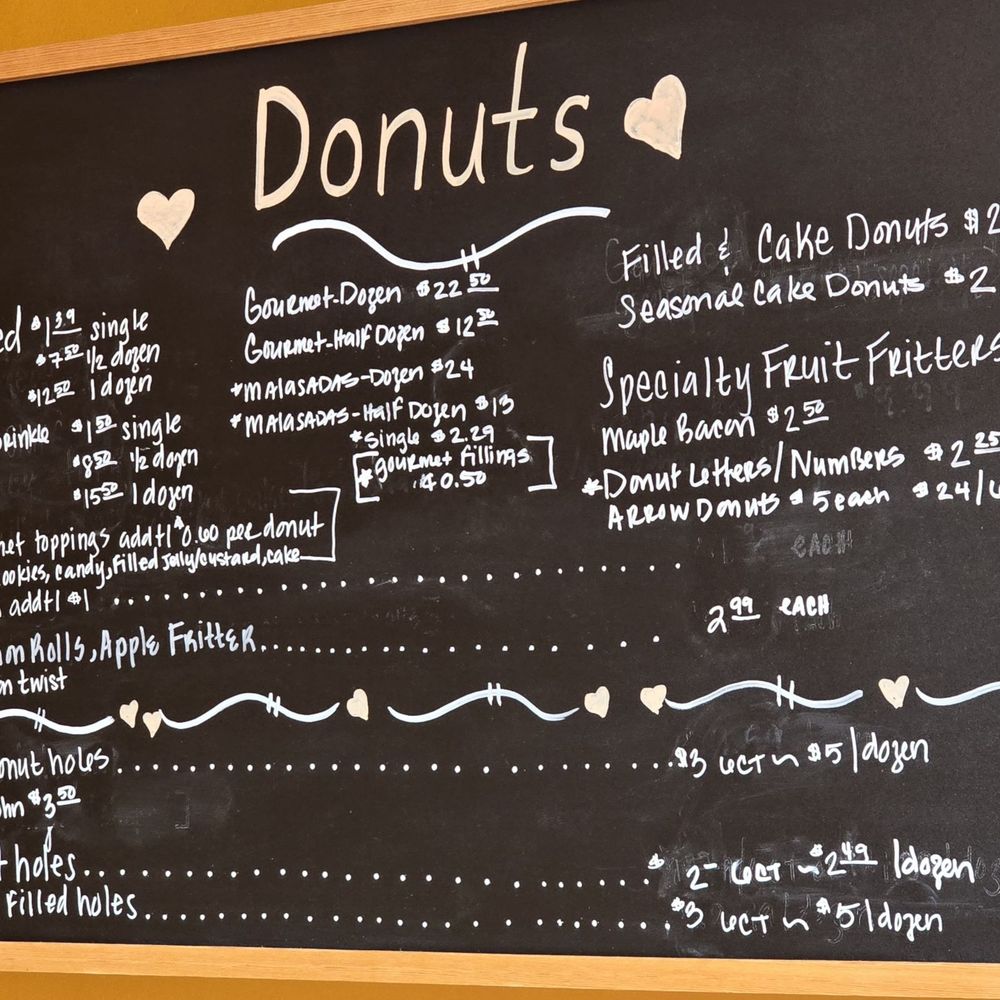 Donuts
ed $1.39 single
$7.50 1/2 dozen
$12.50 1 dozen
rinkle $1.50 single
$8.50 1/2 dozen
$15.50 1 dozen
met toppings addtl $0.60 per donut
ookies, candy, filled jelly/custard, cake
addtl $1
Gourmet-Dozen $22.50
Gourmet-Half Dozen $12.50
*MALASADAS-Dozen $24
*MALASADAS-Half Dozen $13
*Single $2.29
*gourmet fillings
$0.50
Filled & Cake Donuts $2
Seasonal Cake Donuts $2
Specialty Fruit Fritters
Maple Bacon $2.50
*Donut Letters/Numbers $2.25
ARROW Donuts $5 each $24/
on Rolls, Apple Fritter 2.99 EACH
on twist
onut holes $3 6CT ~ $5/dozen
ohn $3.50
t holes $2- 6CT ~ $2.49 1dozen
Filled holes $3 6CT ~ $5 1dozen